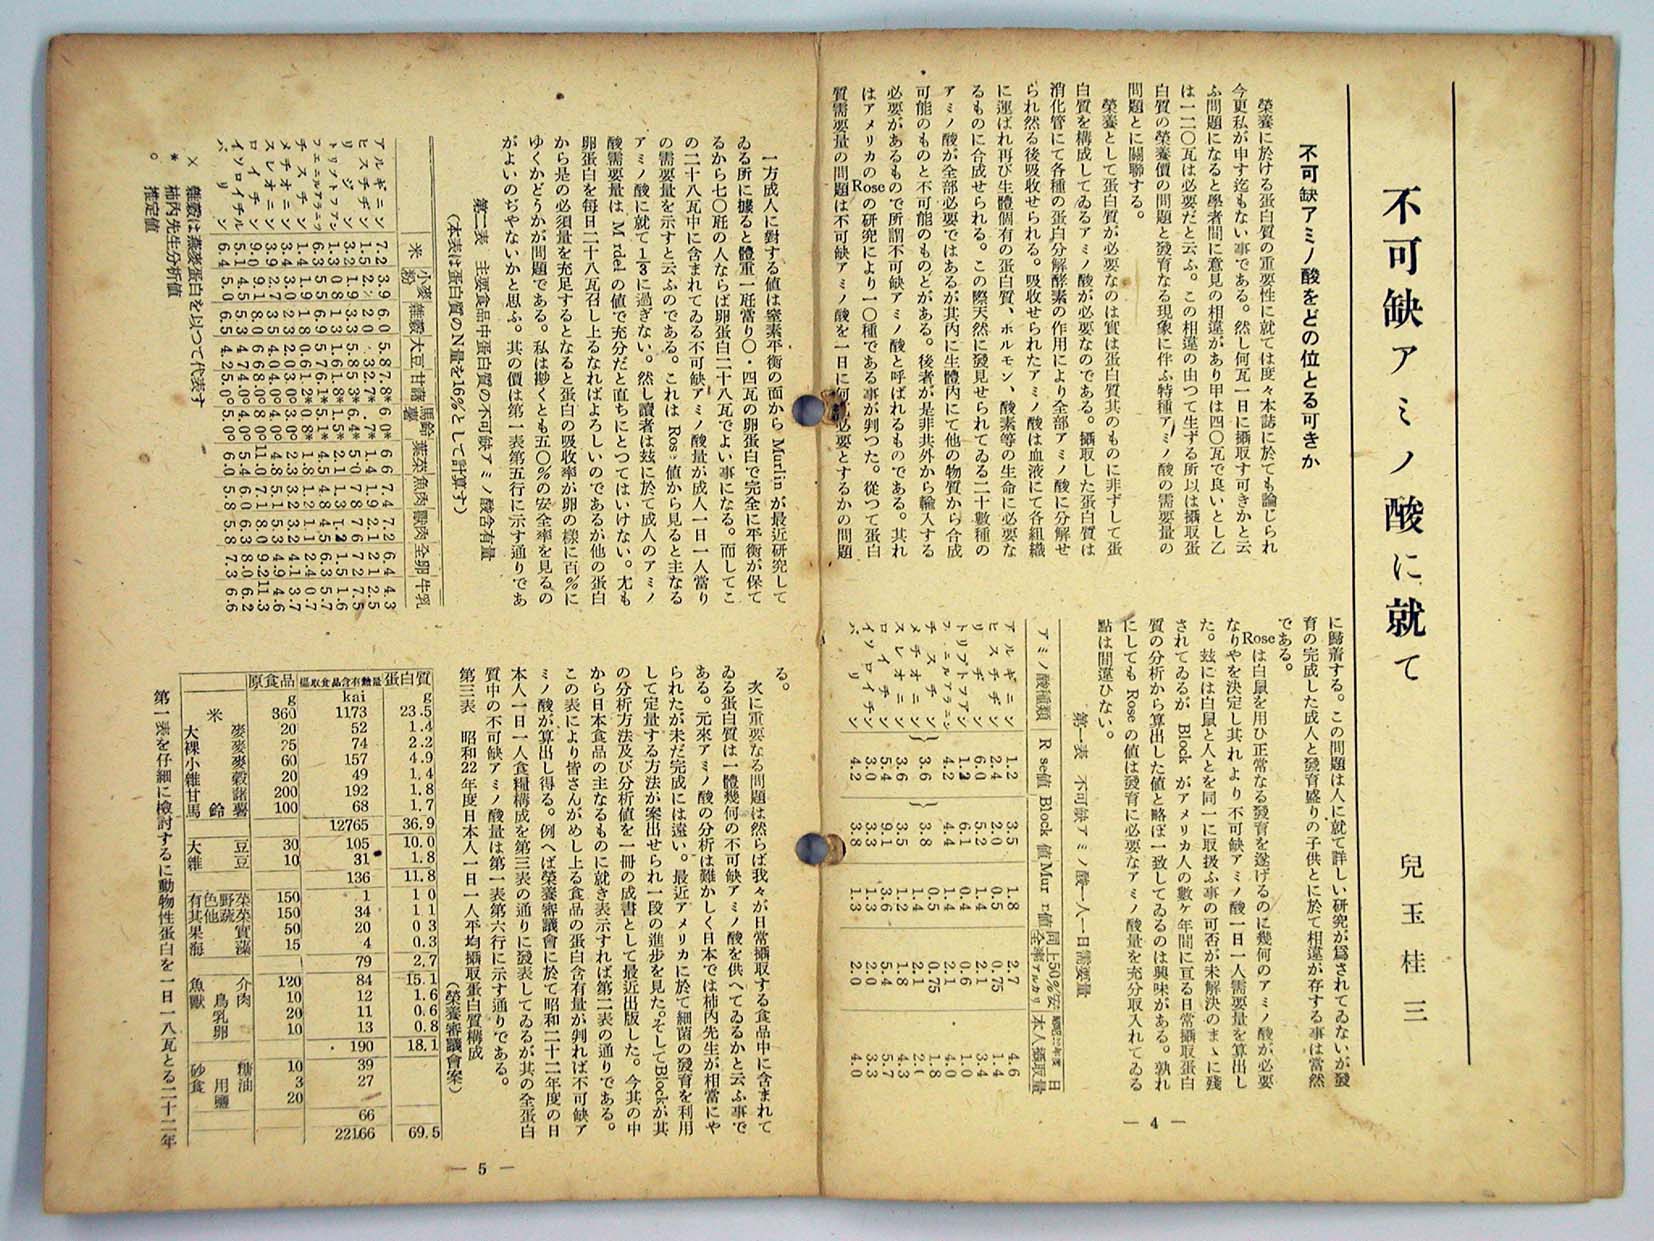 不可缺アミノ酸に就て
兒玉桂三
不可缺アミノ酸をどの位とる可きか
榮養に於ける蛋白質の重要性に就ては度々本誌に於ても論じられ
今更私が申す迄もない事である。然し何瓦一日に攝取す可きかと云
ふ問題になると學者間に意見の相違があり甲は四〇瓦で良いとし乙
は一二〇瓦は必要だと云ふ。この相違の由つて生ずる所以は攝取蛋
白質の榮養價の問題と發育なる現象に伴ふ特種アミノ酸の需要量の
問題とに關聯する。
榮養として蛋白質が必要なのは實は蛋白質其のものに非ずして蛋
白質を構成してゐるアミノ酸が必要なのである。攝取した蛋白質は
消化管にて各種の蛋白分解酵素の作用により全部アミノ酸に分解せ
られ然る後吸收せられる。吸收せられたアミノ酸は血液にて各組織
に運ばれ再び生體個有の蛋白質、ホルモン、酸素等の生命に必要な
るものに合成せられる。この際天然に發見せられてゐる二十數種の
アミノ酸が全部必要ではあるが其内に生體内にて他の物質から合成
可能のものと不可能のものとがある。後者が是非共外から輸入する
必要があるもので所謂不可缺アミノ酸と呼ばれるものである。其れ
はアメリカのRoseの研究により一〇種である事が判つた。從つて蛋白
質需要量の問題は不可缺アミノ酸を一日に何瓦必要とするかの問題
に歸着する。この問題は人に就て詳しい研究が爲されてゐないが發
育の完成した成人と發育盛りの子供とに於て相違が存する事は當然
である。
Roseは白鼠を用ひ正常なる發育を遂げるのに幾何のアミノ酸が必要
なりやを決定し其れより不可缺アミノ酸一日一人需要量を算出し
た。玆には白鼠と人とを同一に取扱ふ事の可否が未解決のまゝに殘
されてゐるが Block がアメリカ人の數ヶ年間に亘る日常攝取蛋白
質の分析から算出した値と略ぼ一致してゐるのは興味がある。孰れ
にしても Rose の値は發育に必要なアミノ酸量を充分取入れてゐる
點は間違ひない。
第一表 不可缺アミノ酸一人一日需要量
アミノ酸種類 R se値 Block 値 Mur n値 同上50%安全率 日本人攝取量
アルギニン 1.2 3.5 1.8 2.7 4.6
ヒスチヂン 2.4 2.0 0.5 0.75 1.4
リヂン 6.0 5.2 1.4 2.1 3.4
トリプトフアン 1.2 6.1 0.4 0.6 1.0
フエニルアラニン 4.2 4.4 1.4
チスチン 0.5 0.75 1.8
メチオニン 3.6 3.8 1.4 2.1
スレオニン 3.6 3.5 1.2 1.8 4.3
ロイチン 5.4 9.1 3.6 5.4 5.7
イソロイチン 3.0 3.3 1.3 2.0 3.3
バリン 4.2 3.8 1.3 2.0 4.0
— 4 —
一方成人に對する値は窒素平衡の面から Murlin が最近研究して
ゐる所に據ると體重一瓩當り〇・四瓦の卵蛋白で完全に平衡が保て
るから七〇瓩の人ならば卵蛋白二十八瓦でよい事になる。而してこ
の二十八瓦中に含まれてゐる不可缺アミノ酸量が成人一日一人當り
の需要量を示すと云ふのである。これは Ros 値から見ると主なる
アミノ酸に就て1/3に過ぎない。然し讀者は玆に於て成人のアミノ
酸需要量は M rdel の値で充分だと直ちにとつてはいけない。尤も
卵蛋白を毎日二十八瓦召し上るなればよろしいのであるが他の蛋白
から是の必須量を充足するとなると蛋白の吸收率が卵の樣に百%に
ゆくかどうかが問題である。私は尠くとも五〇%の安全率を見るの
がよいのぢやないかと思ふ。其の價は第一表第五行に示す通りであ
る。
第二表 主要食品中蛋白質の不可缺アミノ酸含有量
(本表は蛋白質のN量を16%として計算す)
米 小麥粉 雜穀 大豆 甘藷 馬鈴薯 葉菜 魚肉 獸肉 全卵 牛乳
アルギニン 7.2 3.9 6.0 5.8 7.8* 6.0* 6.6 7.4 7.2 6.4 4.3
ヒスチヂン
リジン
トリプトフアン
フエニルアラニン
チスチン
メチオニン
スレオニン
ロイチン
イソロイチン
バリン
× 雜穀は蕎麥蛋白を以つて代表す
* 柿內先生分析値
° 推定値
次に重要なる問題は然らば我々が日常攝取する食品中に含まれて
ゐる蛋白質は一體幾何の不可缺アミノ酸を供へてゐるかと云ふ事で
ある。元來アミノ酸の分析は難かしく日本では柿內先生が相當にや
られたが未だ完成には遠い。最近アメリカに於て細菌の發育を利用
して定量する方法が案出せられ一段の進步を見た。そしてBlockが其
の分析方法及び分析値を一冊の成書として最近出版した。今其の中
から日本食品の主なるものに就き表示すれば第二表の通りである。
この表により皆さんがめし上る食品の蛋白含有量が判れば不可缺ア
ミノ酸が算出し得る。例へば榮養審議會に於て昭和二十二年度の日
本人一日一人食糧構成を第三表の通りに發表してゐるが其の全蛋白
質中の不可缺アミノ酸量は第一表第六行に示す通りである。
第三表 昭和22年度日本人一日一人平均攝取蛋白質構成
(榮養審議會案)
原食品 攝取食品含有熱量 蛋白質
g kai g
米 360 1173 23.5
大麥 20 52 1.4
裸麥 25 74 2.2
小麥 60 157 4.9
雜穀 20 49 1.4
甘藷 200 192 1.8
馬鈴薯 100 68 1.7
12765 36.9
大豆 30 105 10.0
雜豆 10 31 1.8
136 11.8
有色野菜 150 1 1 0
其他蔬菜 150 34 1 1
果實 50 20 0 3
海藻 15 4 0.3
79 2.7
魚介 120 84 15.1
獸鳥肉 10 12 1.6
乳 20 11 0.6
卵 10 13 0.8
190 18.1
砂糖 10 39
食用油 3 27
鹽 20
66
22166 69.5
第一表を仔細に檢討するに動物性蛋白を一日一八瓦とる二十二年
— 5 —